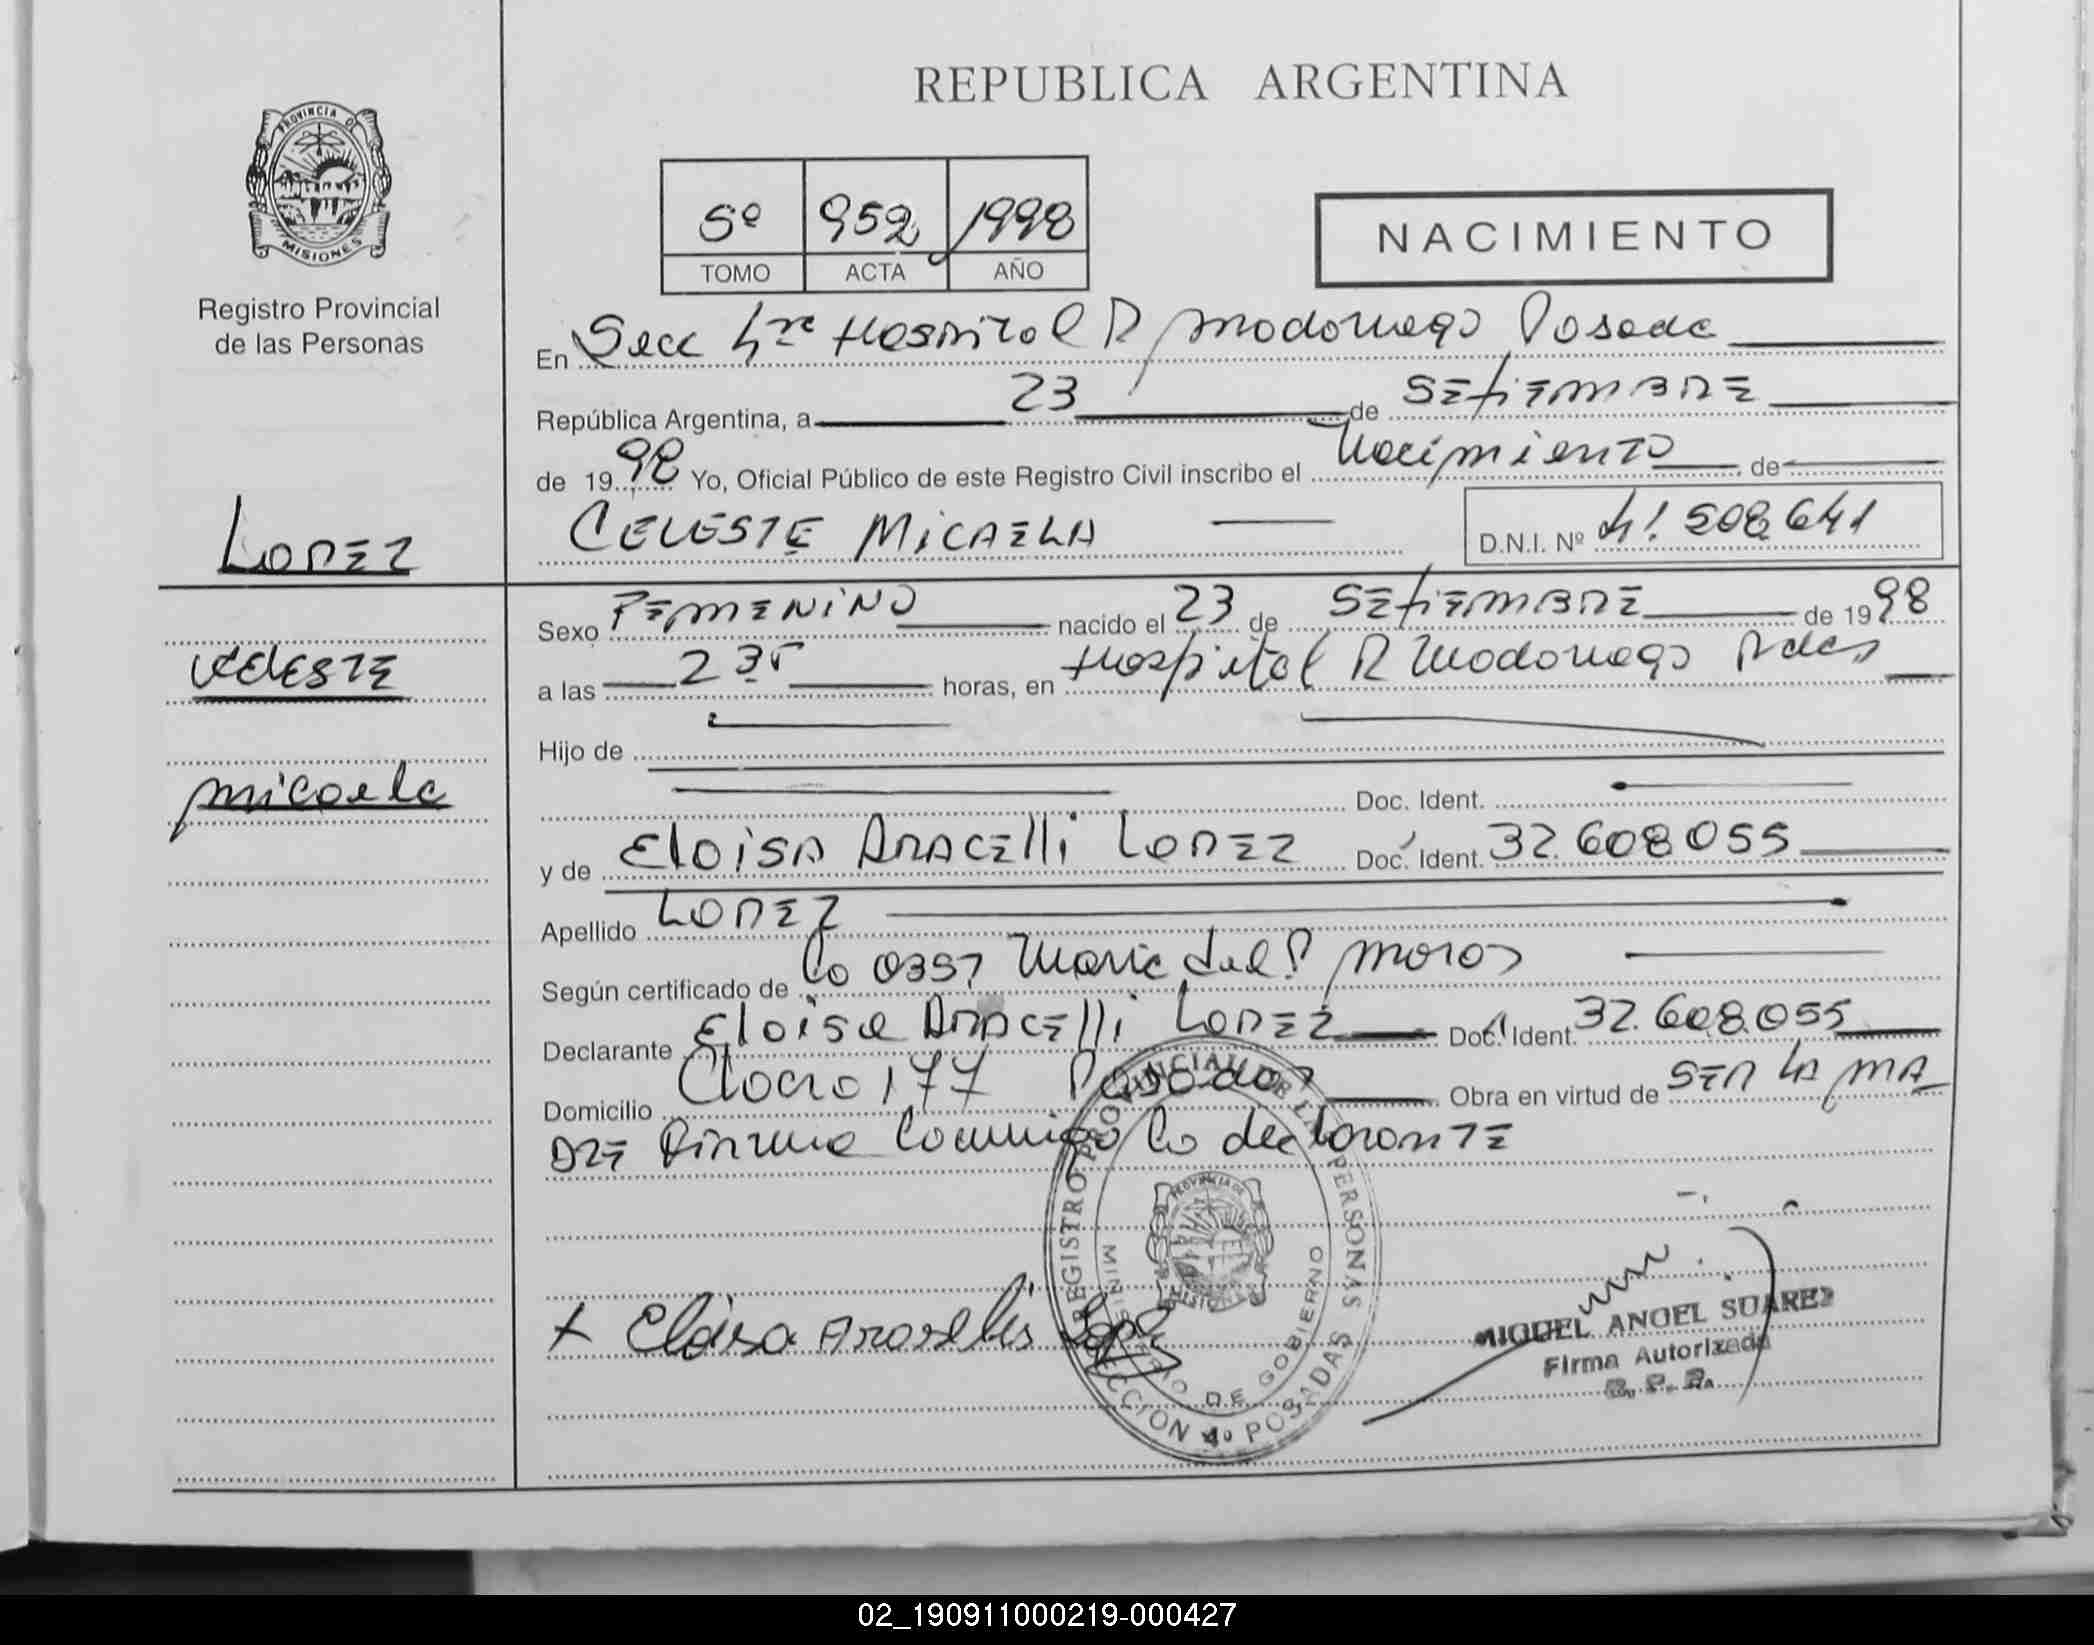 REPUBLICA ARGENTINA
PROVINCIA DE
MISIONES
Registro Provincial
de las Personas
5º 952 1998
TOMO ACTA AÑO
NACIMIENTO
En Secc 4ta Hospital R Madariaga Posadas
República Argentina, a 23 de SEtiEMBRE
de 1998 Yo, Oficial Público de este Registro Civil inscribo el Nacimiento de
LOPEZ
CELESTE MICAELA D.N.I. Nº 41.508.641
Sexo FEMENINO nacido el 23 de SEtiEMBRE de 1998
CELESTE
a las 2 35 horas, en Hospital R Madariaga Pdas
Hijo de
micaela
Doc. Ident.
y de Eloisa ARACElli LOPEZ Doc. Ident. 32.608.055
Apellido LOPEZ
Según certificado de Co 0357 Maria del
Declarante Eloisa ARACElli LOPEZ Doc. Ident. 32.608.055
Domicilio 177 Posadas Obra en virtud de SER LA MA
DRE Firma Conmigo la declarante
REGISTRO PROVINCIAL DE LAS PERSONAS
MINISTERIO DE GOBIERNO
PROVINCIA DE
MISIONES
SECCION 4º POSADAS
x Eloisa Araselis Lopez
MIGUEL ANGEL SUAREZ
Firma Autorizada
02_190911000219-000427